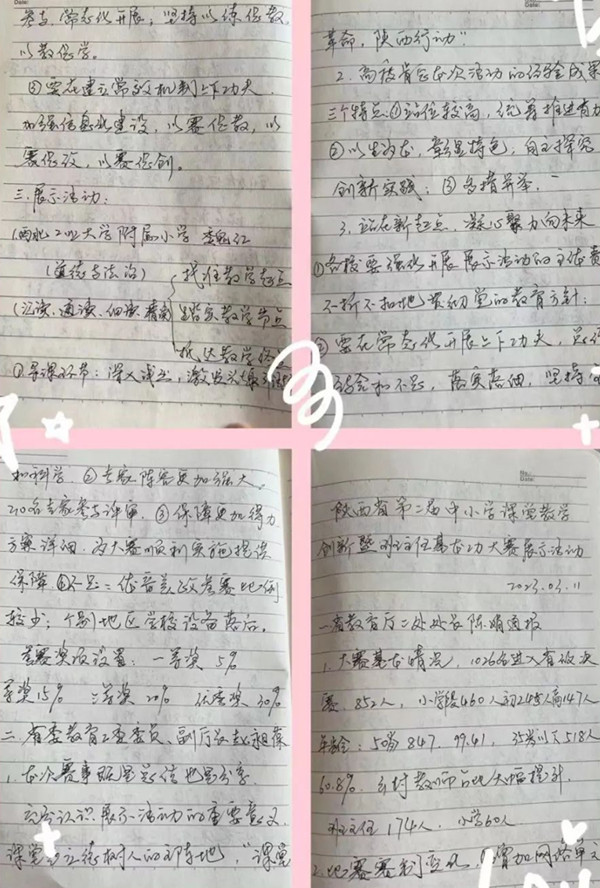 参与，常态化开展，坚持以练促教，
以教促学。
③要在建立常效机制上下功夫
加强信息化建设，以赛促教，以
赛促改，以赛促创。
三.展示活动：
(西北工业大学附属小学
(道德与法治)
找准教学起点
落实教学节点
抵达教学终点
(沉读、通读、细读、精读
①导课环节：深入浅出，激发兴趣
革命，陕西行动"
2.高度肯定本次活动的经验成果
三个特点①站位较高，统筹推进有力
②以生为本，彰显特色，自主探究
创新实践；③多措并举，
3.站在新起点，凝心聚力向未来
①各校要强化开展展示活动的主体责
不折不扣地贯彻党的教育方针；
②要在常态化开展上下功夫，总结
经验和不足，落实落细，坚持
和科学 ②专家阵容更加强大
210名专家参与评审，③保障更加得力
方案详细，为大赛顺利实施提供
保障 ④不足：体音美政参赛比例
较少；个别地区学校设备落后。
参赛奖项设置：一等奖 5%
等奖15% 三等奖20% 优秀奖30%
二.省委教育工委委员、副厅长赵昶葆
1.本次赛事既是总结也是分享
充分认识展示活动的重要意义
课堂为立德树人的主阵地，"课堂
陕西省第二届中小学课堂教学
创新暨班主任基本功大赛展示活动
2023.03.11
一省教育厅二处处长陈娟通报
1.大赛基本情况，1026名进入省级决
赛，852人，小学段460人初245人高147人
年龄：50岁847. 99.41，35岁以下518人
60.8%. 乡村教师占比大幅提升.
班主任174人，小学60人
2.比赛赛制变化，①增加网络单元